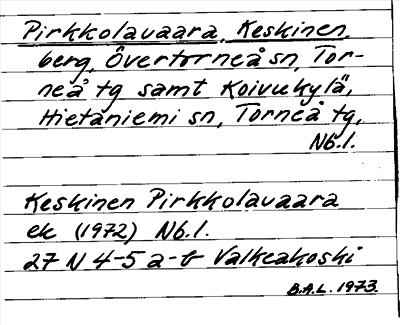 Pirkkolavaara, Keskinen,
berg, Övertorneå sn, Tor-
neå tg samt Koivukylä,
Hietaniemi sn, Torneå tg,
Nb.l.
Keskinen Pirkkolavaara
ek (1972) Nb.l.
27 N 4-5 a-b Valkeakoski
B.A.L. 1973.